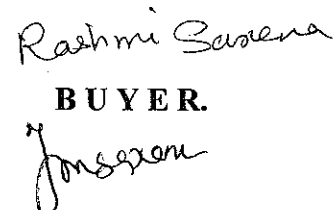 Rashmi Saxena
BUYER.